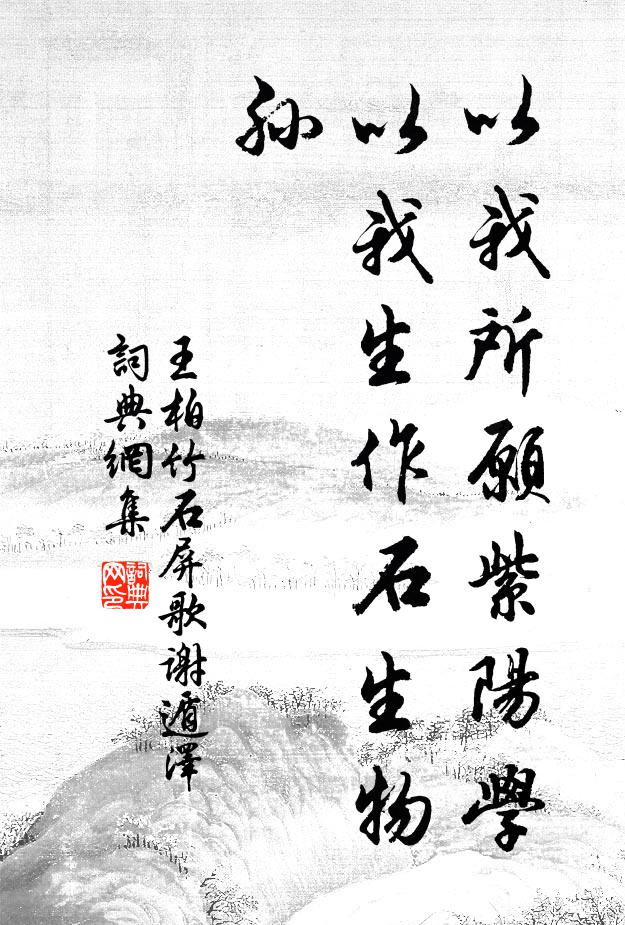 以我所願紫陽學
以我生作石生物
孫
王柏竹石屏歌謝遁澤
詞典網集
詞典网印